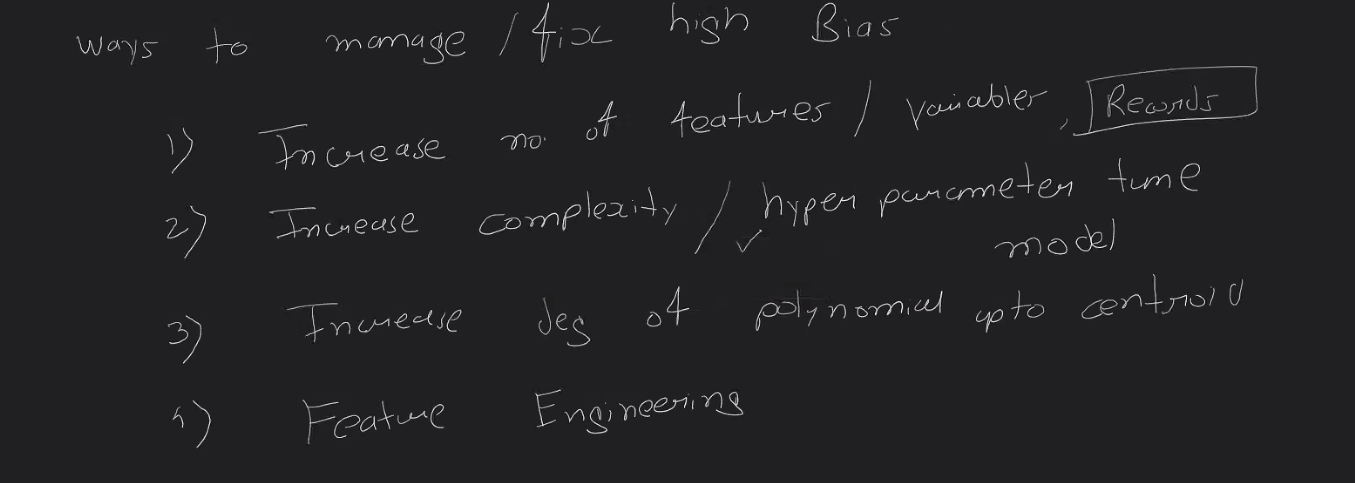 ways to manage / fix high Bias
1) Increase no. of features / variables, Records
2) Increase complexity / hyper parameter tune
model
3) Increase deg of polynomial upto centroid
4) Feature Engineering